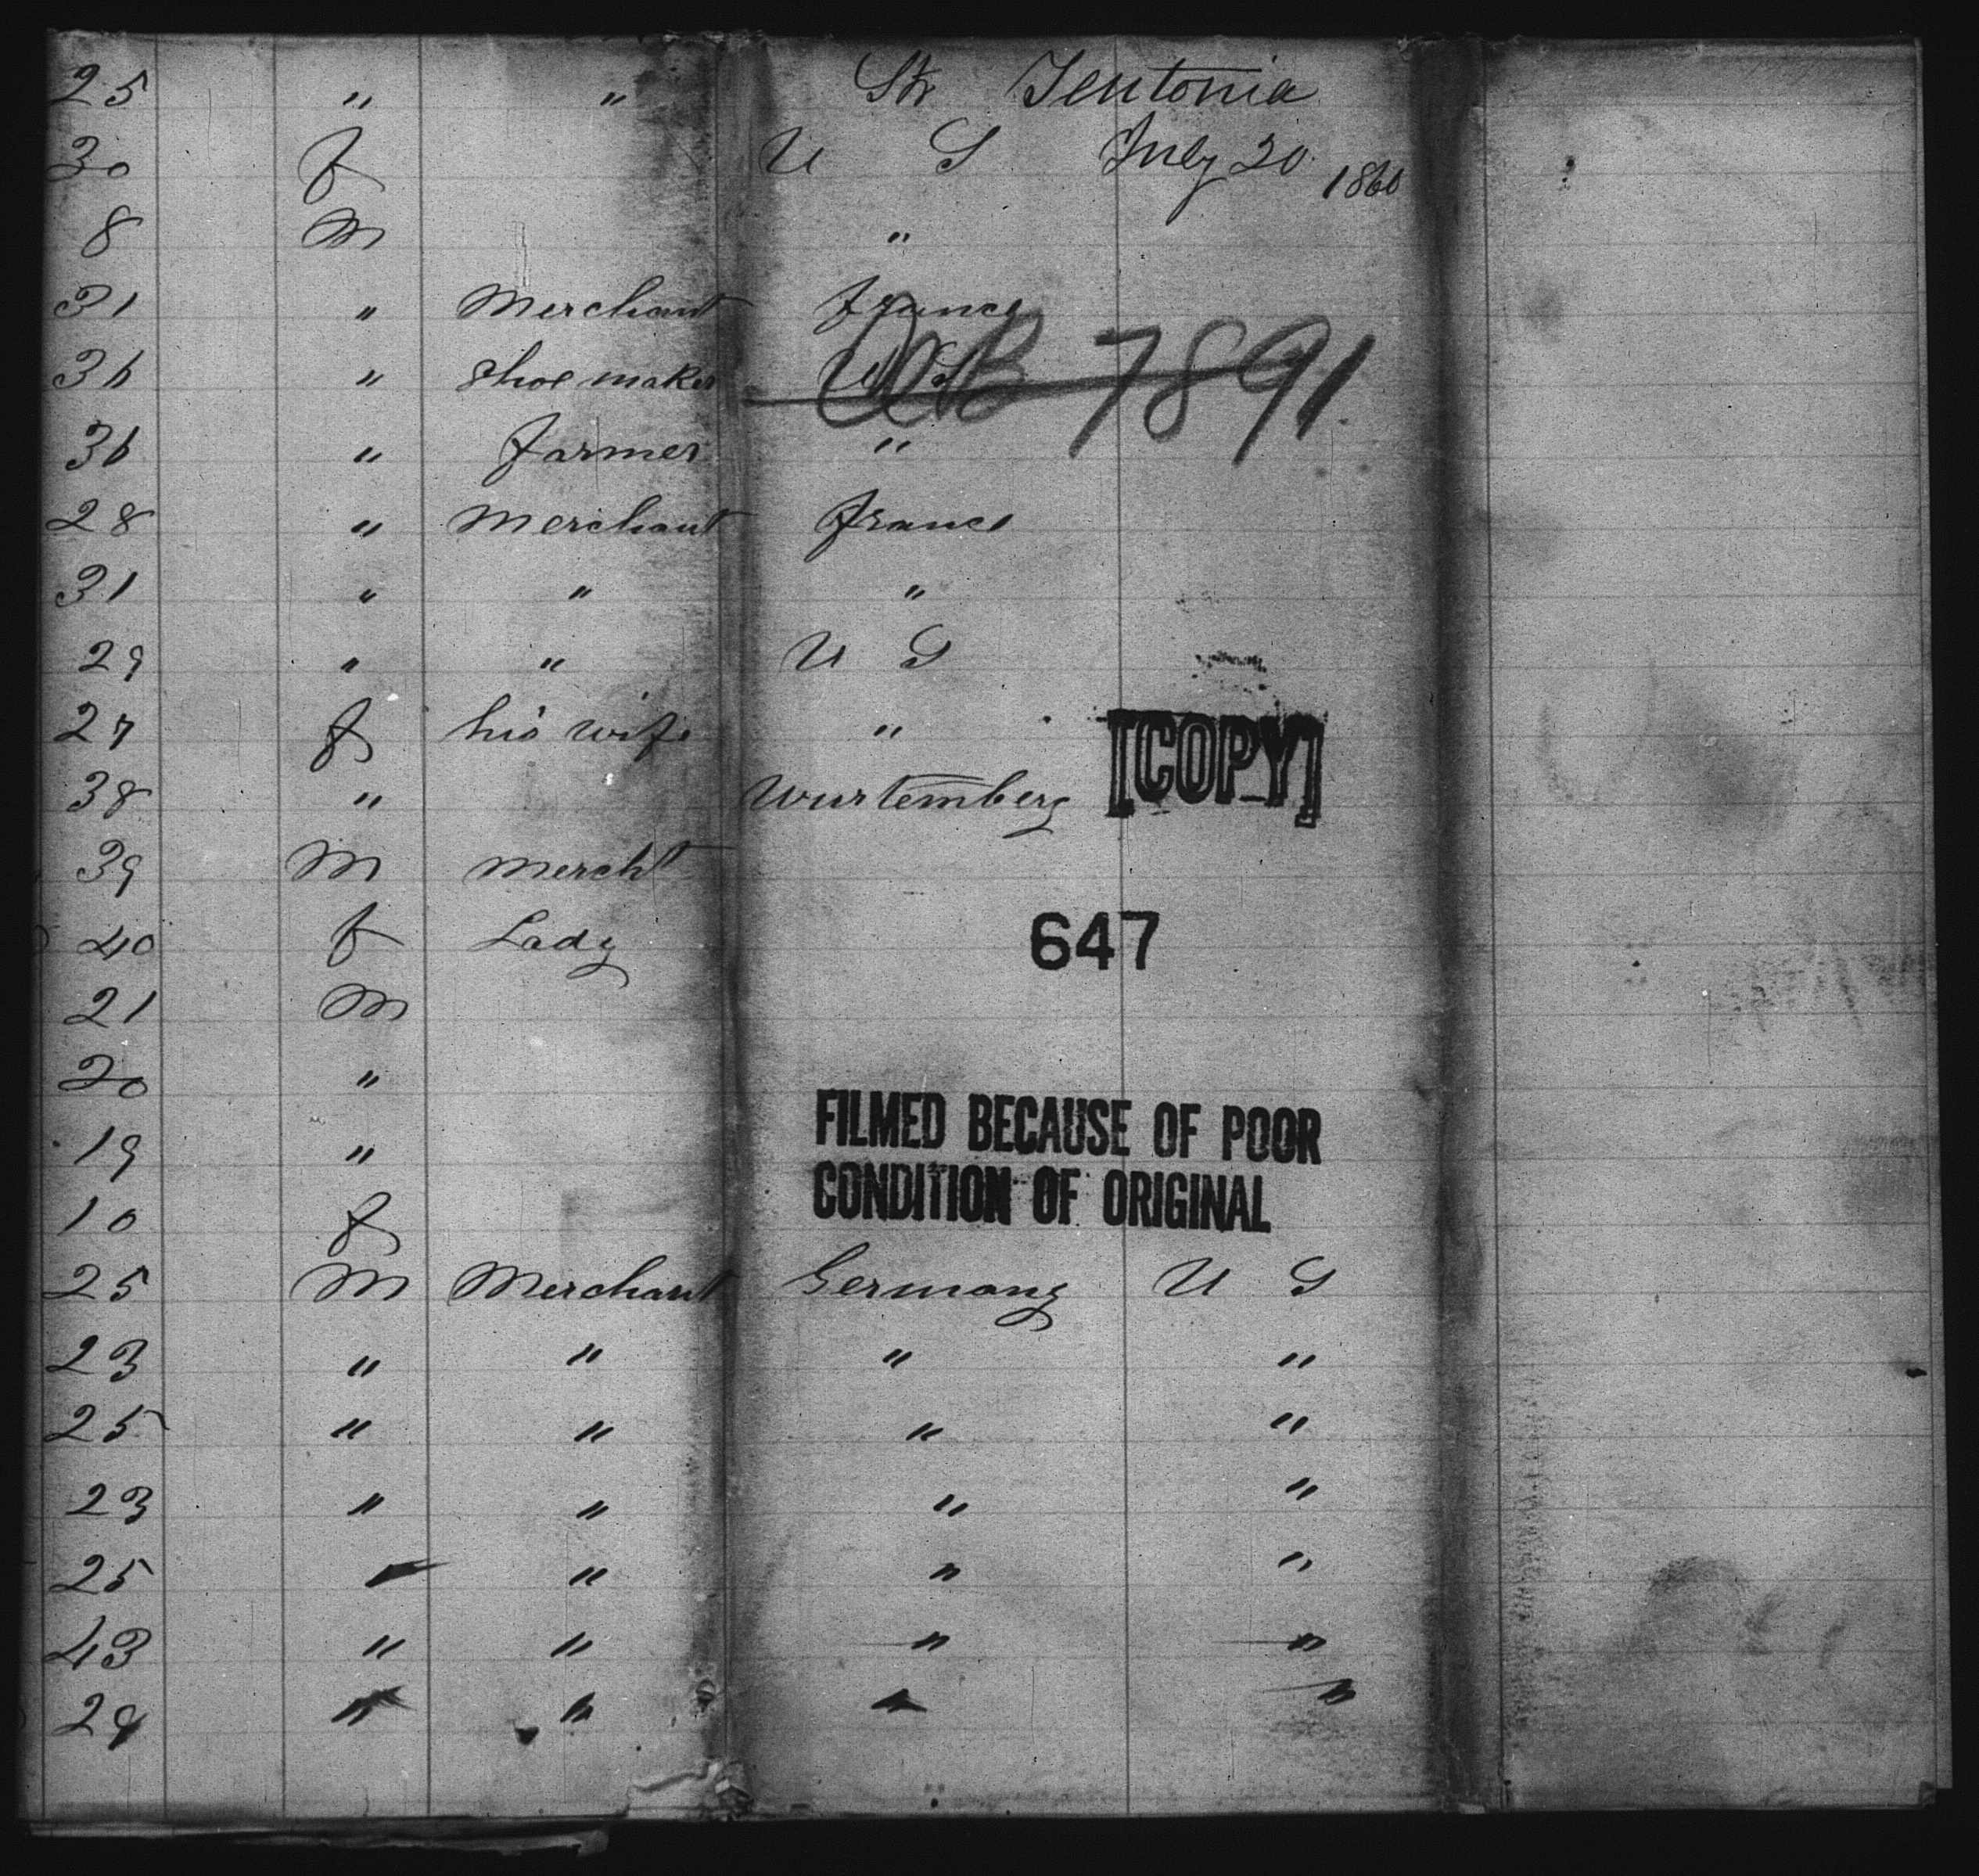 25 " " Str Teutonia
30 f U S July 20 1860
8 M "
31 " Merchant France
36 " Shoe maker U S
7891
36 " farmer "
28 " Merchant France
31 " " "
29 " " U S
27 f his wife "
38 " Wurtemberg [COPY]
39 M Mercht
40 f Lady 647
21 M
20 "
19 " FILMED BECAUSE OF POOR
CONDITION OF ORIGINAL
10 f
25 M Merchant Germany U S
23 " " " "
25 " " " "
23 " " " "
25 " " " "
43 " " " "
29 " " " "